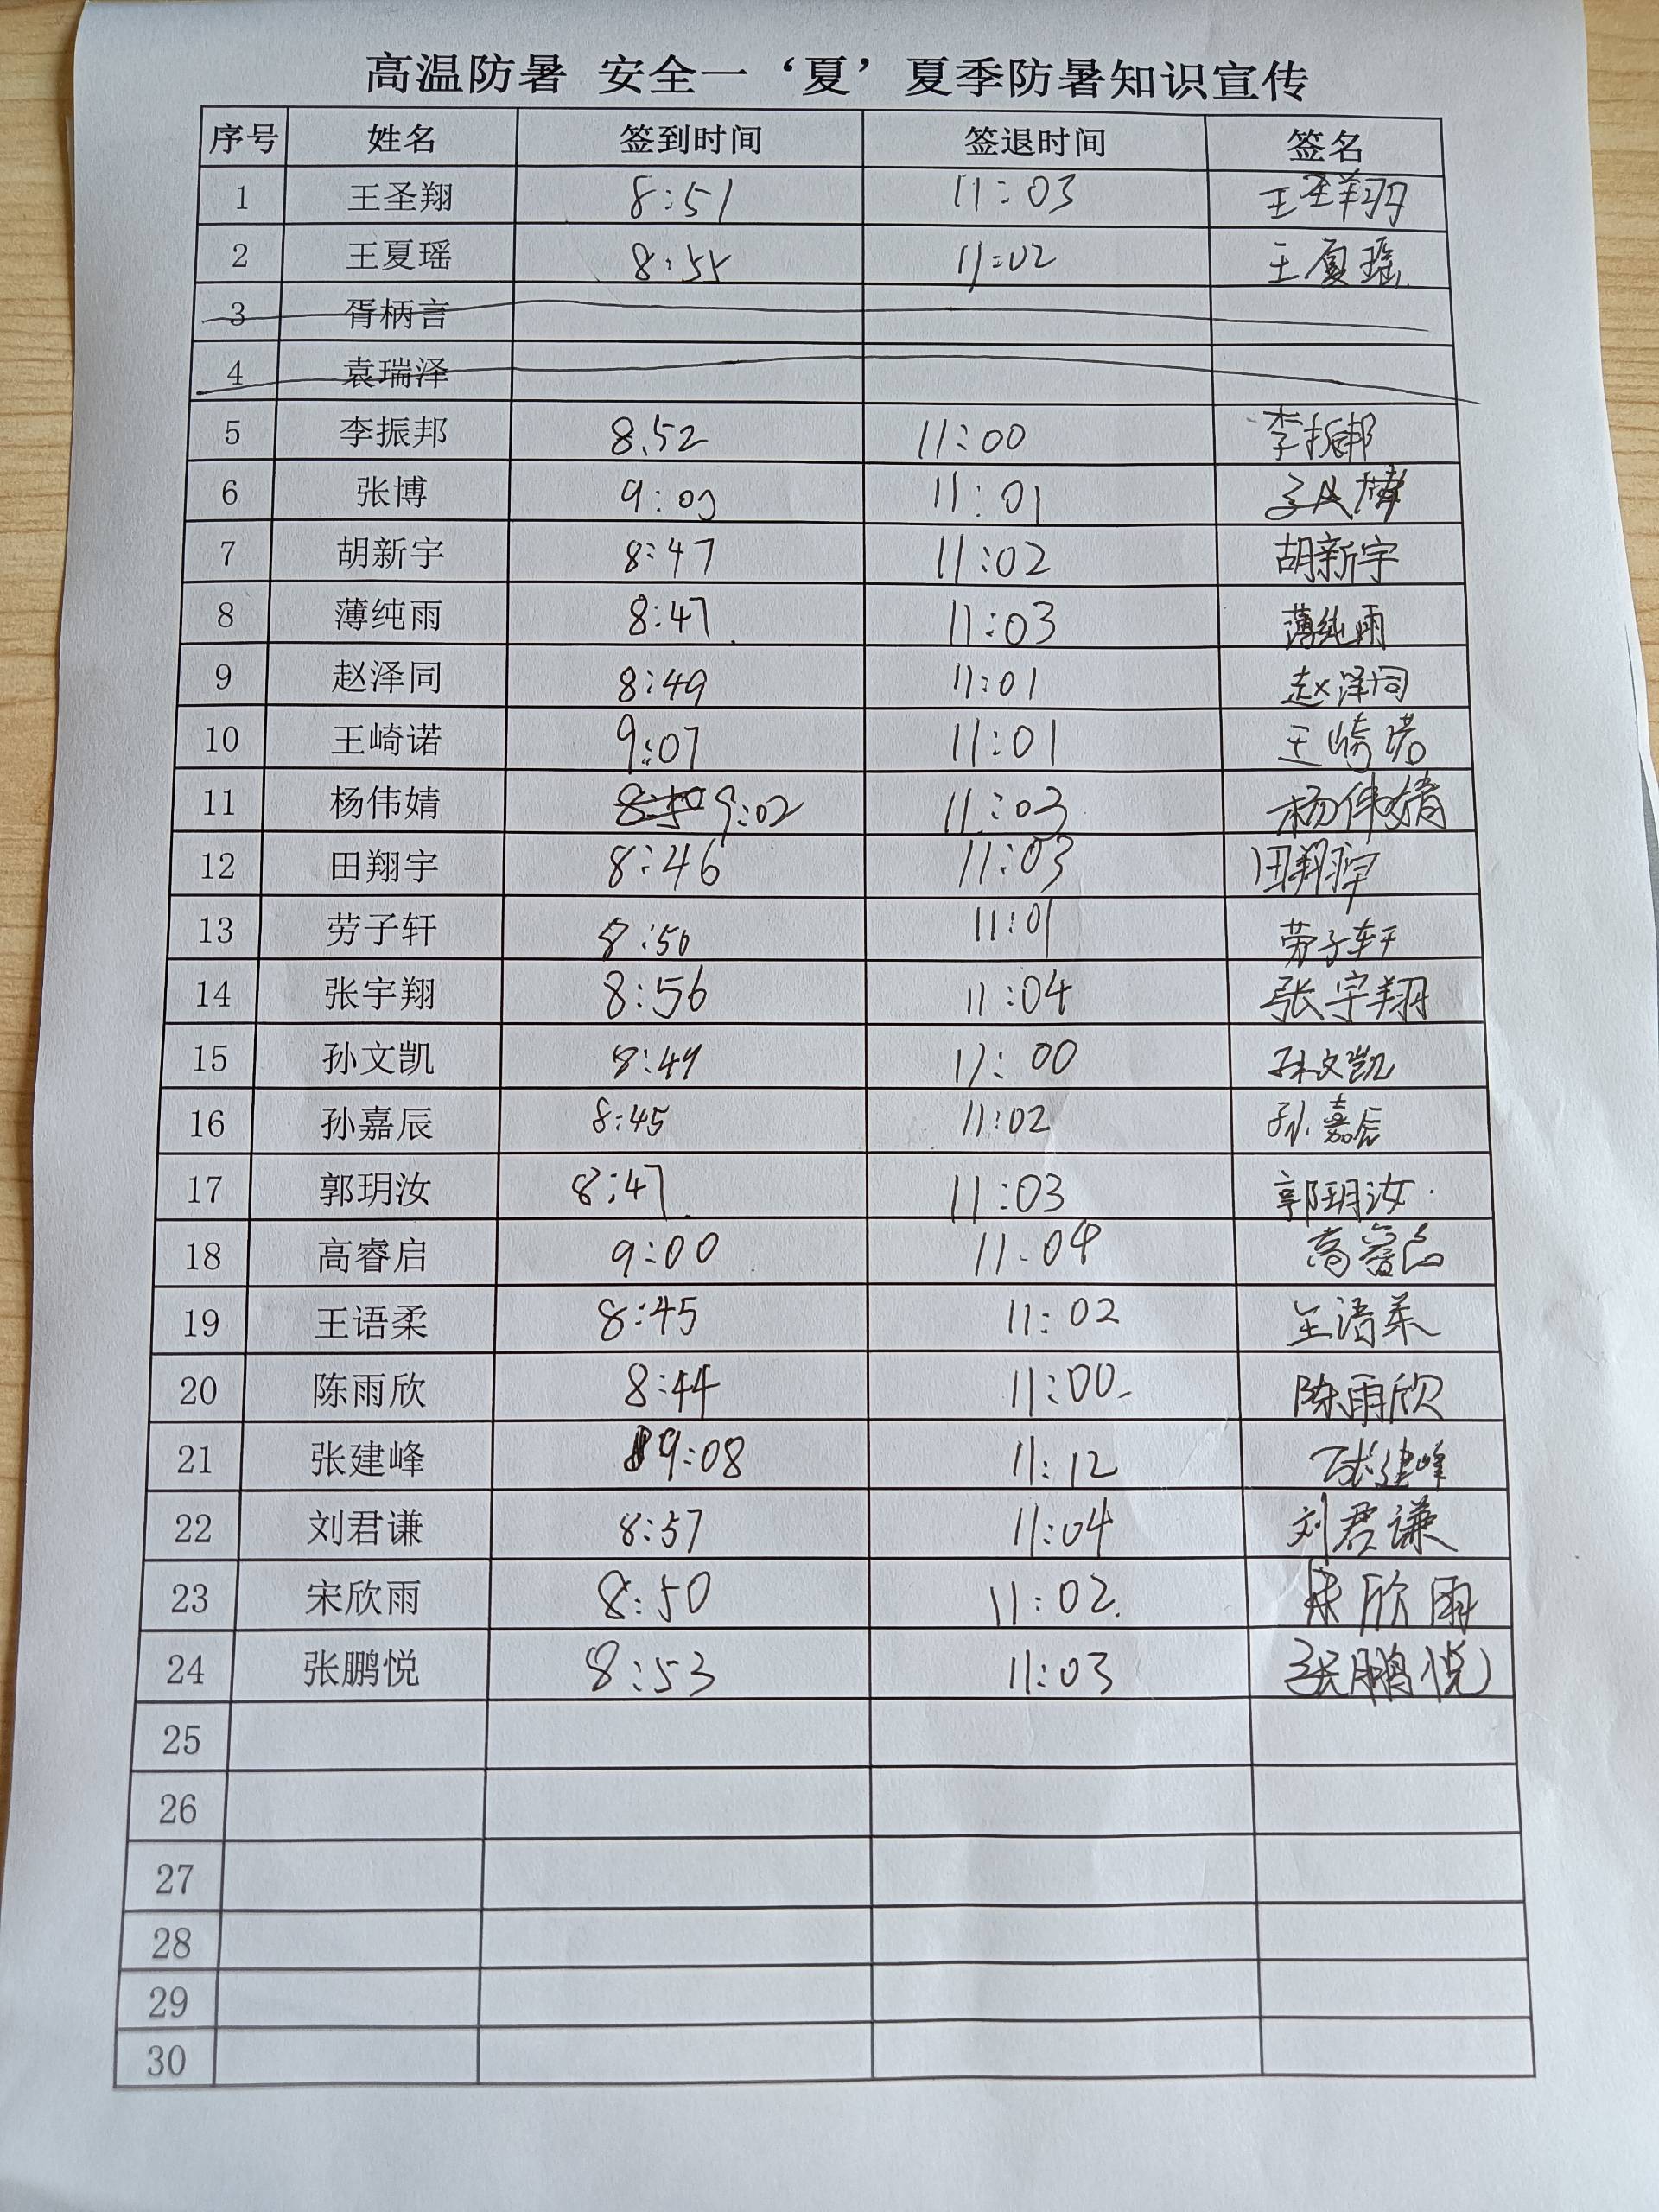 高温防暑 安全一‘夏’夏季防暑知识宣传
序号 姓名 签到时间 签退时间 签名
1 王圣翔 8:51 11:03 王圣翔
2 王夏瑶 8:55 11:02 王夏瑶
3 胥柄言
4 袁瑞泽
5 李振邦 8.52 11:00 李振邦
6 张博 11:01 张博
7 胡新宇 8:47 11:02 胡新宇
8 薄纯雨 8:47 11:03 薄纯雨
9 赵泽同 8:49 11:01 赵泽同
10 王崎诺 9:07 11:01 王崎诺
11 杨伟婧 9:02 11:03 杨伟婧
12 田翔宇 8:46 11:03 田翔宇
13 劳子轩 8:50 11:01 劳子轩
14 张宇翔 8:56 11:04 张宇翔
15 孙文凯 8:49 11:00 孙文凯
16 孙嘉辰 8:45 11:02 孙嘉辰
17 郭玥汝 8:47 11:03 郭玥汝
18 高睿启 9:00 11:04 高睿启
19 王语柔 8:45 11:02 王语柔
20 陈雨欣 8:44 11:00 陈雨欣
21 张建峰 9:08 11:12 张建峰
22 刘君谦 8:57 11:04 刘君谦
23 宋欣雨 8:50 11:02 宋欣雨
24 张鹏悦 8:53 11:03 张鹏悦
25
26
27
28
29
30